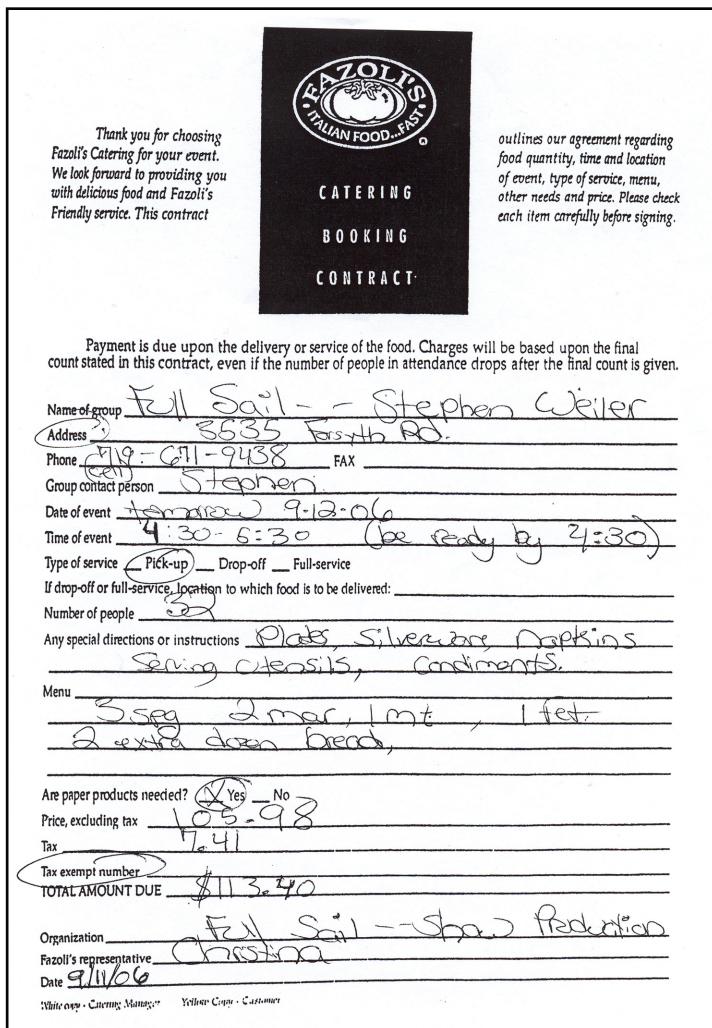 FAZOLI'S
ITALIAN FOOD...FAST
®
CATERING
BOOKING
CONTRACT
Thank you for choosing
Fazoli's Catering for your event.
We look forward to providing you
with delicious food and Fazoli's
Friendly service. This contract
outlines our agreement regarding
food quantity, time and location
of event, type of service, menu,
other needs and price. Please check
each item carefully before signing.
Payment is due upon the delivery or service of the food. Charges will be based upon the final
count stated in this contract, even if the number of people in attendance drops after the final count is given.
Name of group Full Sail -- Stephen Weiler
Address 3635 Forsyth Rd.
Phone 719-671-9438 FAX
(cell)
Group contact person Stephen
Date of event tomarrow 9-12-06
Time of event 4:30-6:30 (be ready by 4:30)
Type of service Pick-up Drop-off Full-service
If drop-off or full-service, location to which food is to be delivered:
Number of people 32
Any special directions or instructions Plates, Silverware, Napkins
Serving utensils, Condiments.
Menu
3 spg 2 mar, 1 mt, 1 fet.
2 extra dozen bread,
Are paper products needed? X Yes No
Price, excluding tax 105.98
Tax 7.41
Tax exempt number
TOTAL AMOUNT DUE $113.40
Organization Full Sail -- Show Production
Fazoli's representative Christina
Date 9/11/06
White copy - Catering Manager Yellow Copy - Customer